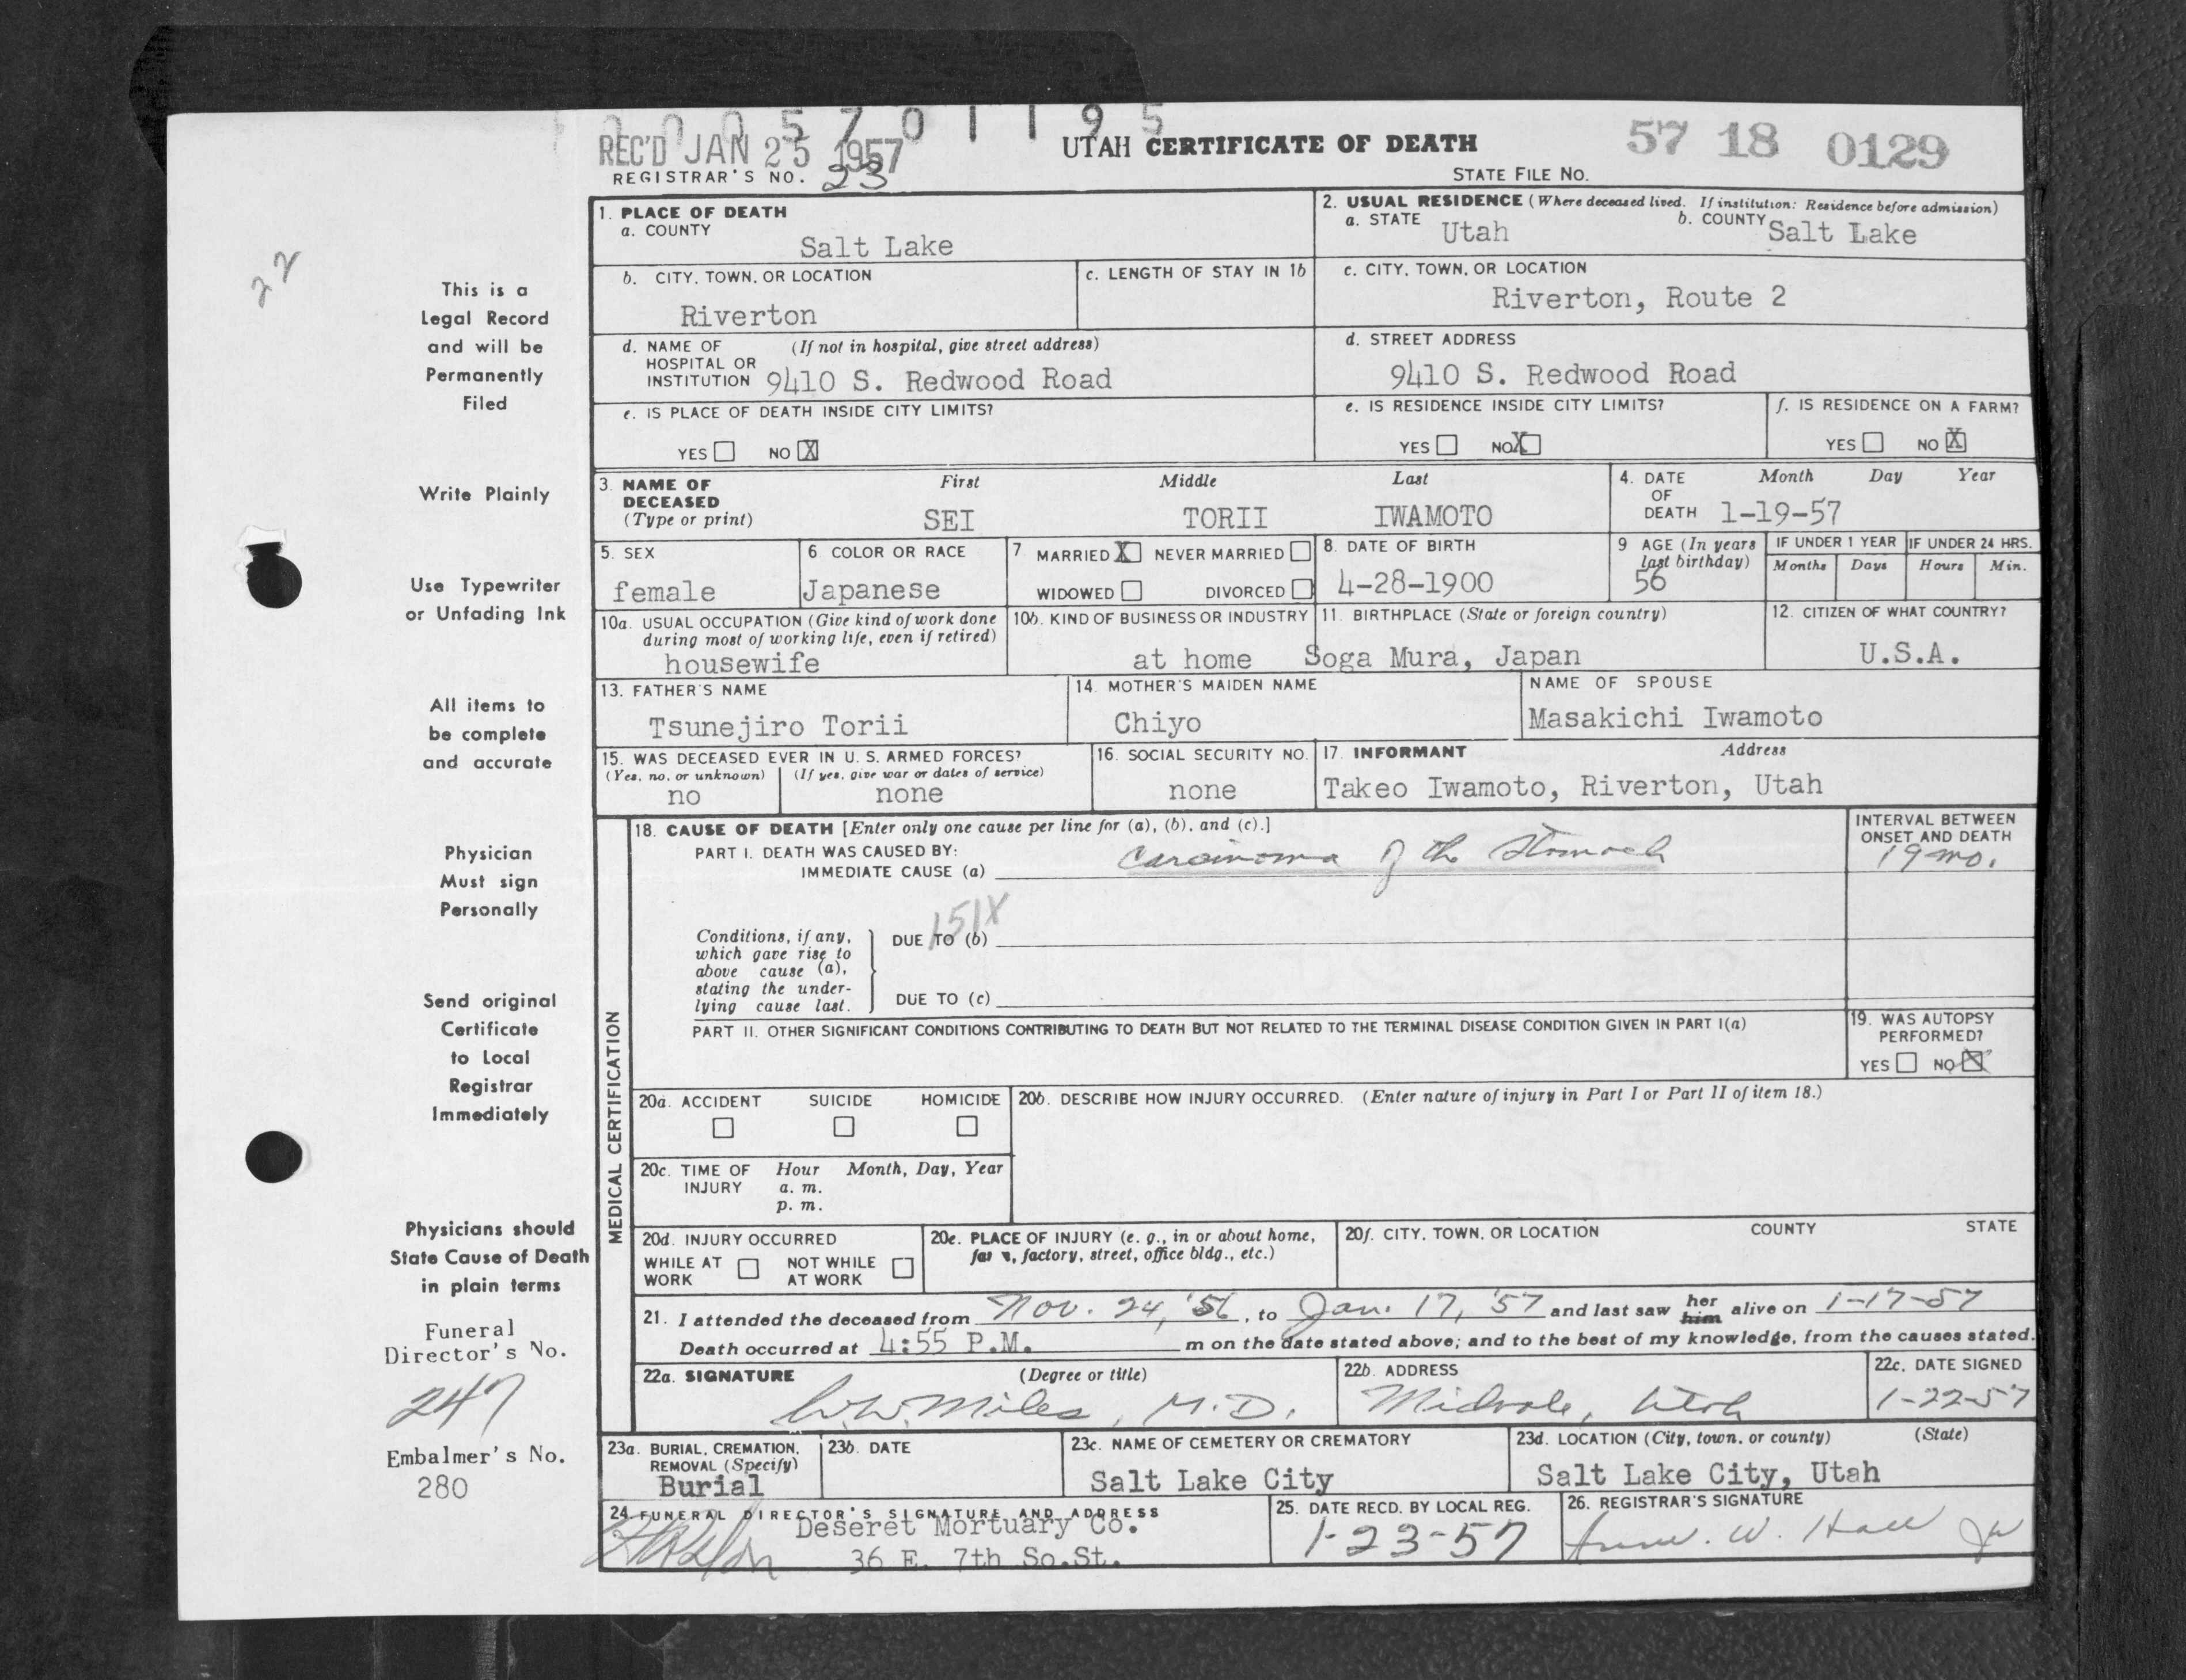 0 0 0 5 7 0 1 1 9 5
REC'D JAN 25 1957
UTAH CERTIFICATE OF DEATH
57 18 0129
REGISTRAR'S NO. 23
STATE FILE NO.
22
This is a
Legal Record
and will be
Permanently
Filed
Write Plainly
Use Typewriter
or Unfading Ink
All items to
be complete
and accurate
Physician
Must sign
Personally
Send original
Certificate
to Local
Registrar
Immediately
Physicians should
State Cause of Death
in plain terms
Funeral
Director's No.
247
Embalmer's No.
280
1. PLACE OF DEATH
a. COUNTY
Salt Lake
2. USUAL RESIDENCE (Where deceased lived. If institution: Residence before admission)
a. STATE Utah b. COUNTY Salt Lake
b. CITY, TOWN, OR LOCATION
Riverton
c. LENGTH OF STAY IN 1b
c. CITY, TOWN, OR LOCATION
Riverton, Route 2
d. NAME OF (If not in hospital, give street address)
HOSPITAL OR
INSTITUTION 9410 S. Redwood Road
d. STREET ADDRESS
9410 S. Redwood Road
e. IS PLACE OF DEATH INSIDE CITY LIMITS?
YES NO X
e. IS RESIDENCE INSIDE CITY LIMITS?
YES NO X
f. IS RESIDENCE ON A FARM?
YES NO X
3. NAME OF DECEASED (Type or print)
First Middle Last
SEI TORII IWAMOTO
4. DATE OF DEATH
Month Day Year
1-19-57
5. SEX
female
6. COLOR OR RACE
Japanese
7. MARRIED X NEVER MARRIED
WIDOWED DIVORCED
8. DATE OF BIRTH
4-28-1900
9. AGE (In years last birthday)
56
IF UNDER 1 YEAR
Months Days
IF UNDER 24 HRS.
Hours Min.
10a. USUAL OCCUPATION (Give kind of work done
during most of working life, even if retired)
housewife
10b. KIND OF BUSINESS OR INDUSTRY
at home
11. BIRTHPLACE (State or foreign country)
Soga Mura, Japan
12. CITIZEN OF WHAT COUNTRY?
U.S.A.
13. FATHER'S NAME
Tsunejiro Torii
14. MOTHER'S MAIDEN NAME
Chiyo
NAME OF SPOUSE
Masakichi Iwamoto
15. WAS DECEASED EVER IN U. S. ARMED FORCES?
(Yes, no, or unknown) (If yes, give war or dates of service)
no none
16. SOCIAL SECURITY NO.
none
17. INFORMANT Address
Takeo Iwamoto, Riverton, Utah
MEDICAL CERTIFICATION
18. CAUSE OF DEATH [Enter only one cause per line for (a), (b), and (c).]
PART I. DEATH WAS CAUSED BY:
IMMEDIATE CAUSE (a) Carcinoma of the Stomach
INTERVAL BETWEEN
ONSET AND DEATH
19 mo.
151X
Conditions, if any,
which gave rise to
above cause (a),
stating the under-
lying cause last.
DUE TO (b)
DUE TO (c)
PART II. OTHER SIGNIFICANT CONDITIONS CONTRIBUTING TO DEATH BUT NOT RELATED TO THE TERMINAL DISEASE CONDITION GIVEN IN PART I(a)
19. WAS AUTOPSY
PERFORMED?
YES NO X
20a. ACCIDENT SUICIDE HOMICIDE
20b. DESCRIBE HOW INJURY OCCURRED. (Enter nature of injury in Part I or Part II of item 18.)
20c. TIME OF INJURY
Hour Month, Day, Year
a. m.
p. m.
20d. INJURY OCCURRED
WHILE AT WORK NOT WHILE AT WORK
20e. PLACE OF INJURY (e. g., in or about home,
farm, factory, street, office bldg., etc.)
20f. CITY, TOWN, OR LOCATION COUNTY STATE
21. I attended the deceased from Nov. 24, '56, to Jan. 17, '57 and last saw her him alive on 1-17-57
Death occurred at 4:55 P.M. m on the date stated above; and to the best of my knowledge, from the causes stated.
22a. SIGNATURE (Degree or title)
W.W. Miles, M.D.
22b. ADDRESS
Midvale, Utah
22c. DATE SIGNED
1-22-57
23a. BURIAL, CREMATION,
REMOVAL (Specify)
Burial
23b. DATE
23c. NAME OF CEMETERY OR CREMATORY
Salt Lake City
23d. LOCATION (City, town, or county) (State)
Salt Lake City, Utah
24. FUNERAL DIRECTOR'S SIGNATURE AND ADDRESS
Deseret Mortuary Co.
36 E. 7th So.St.
25. DATE RECD. BY LOCAL REG.
1-23-57
26. REGISTRAR'S SIGNATURE
W. Hall